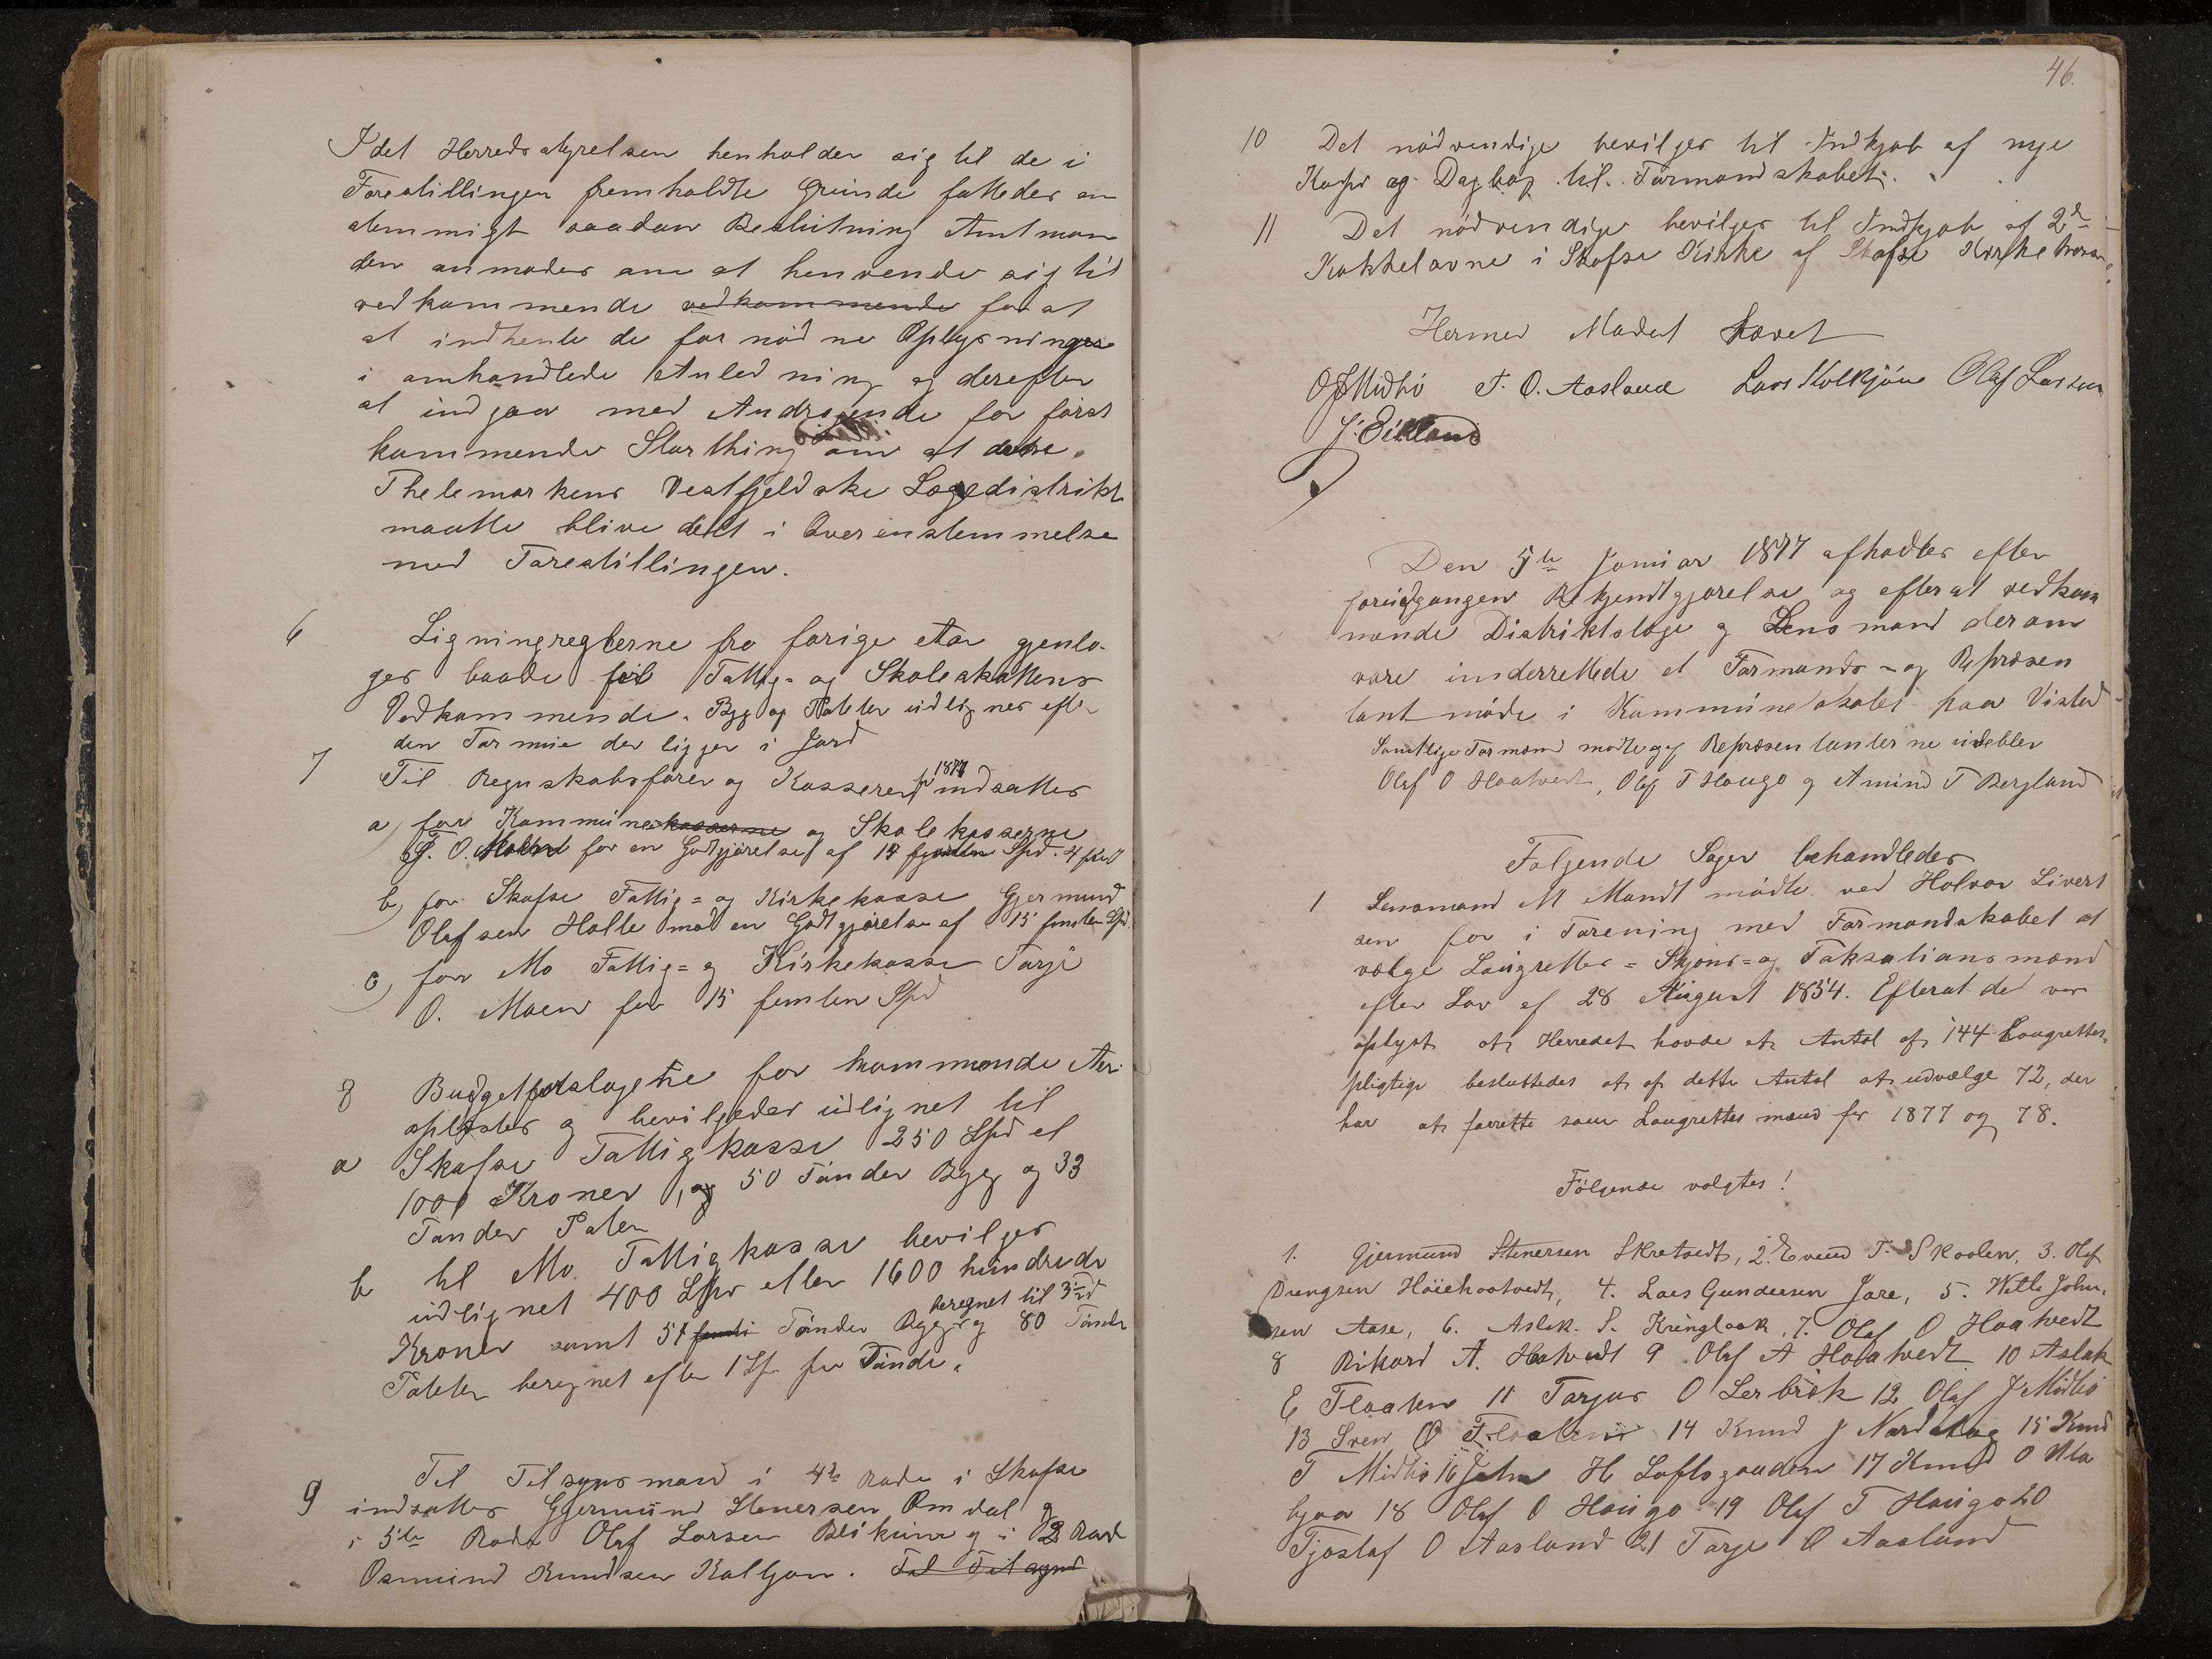 Idet Herredsstyrelsen henholder sig til de i
Forestillingen fremholdte Grunde fattedes en
stemmigt saadan Beslutning Amtman
den anmodes om at henvende sig til
vedkommende vedkommende for at
at indhente de fornødne Oplysninger
i omhandlede Anledning og derefter
at indgaa med Andragende for først
kommende Storthing om at dette
Thelemarkens Vestfjeldske Lægedistrikt
maatte blive delt i Overenstemmelse
med Forestillingen.
6 Ligningreglerne fra forige Aar gjenta-
ges baade for Fattig- og Skoleskattens
Vedkommende. Byg og Poteter udlignes efter
den Formue der ligger i Jord
7 Til Regnskabsfører og Kasserer for 1877 indsattes
a, for Kommunekasserne og Skolekasserne
T. O. Moen for en Godtgjørelse af 14 fjorten Spd.
b, for Skafse Fattig= og Kirkekasse Gjermund
Olafsen Halle mod en Godtgjørelse af 15 femten Spd.
c, for Mo Fattig= og Kirkekasse Tarje
O. Moen for 15 femten Spd
8 Budgetforslagene for kommende Aar
oplæstes og bevilgedes udlignet til
a Skafse Fattigkasse 250 Spd el
1000 Kroner, og 50 Tønder Byg og 33
Tønder Poteter
b til Mo Fattigkasse bevilges
udlignet 400 Spd eller 1600 hundrede
beregnet til 3 Spd
Kroner samt 51 Tønder Byg og 80 Tønder
Poteter beregnet efter 1 Spd per Tønde.
9 Til Tilsynsmand i 4de Rode i Skafse
indsattes Gjermund Stenersen Omdal og
i 5te Rode Olaf Larsen og i 2 Rode
Osmund Knudsen Kolkjøn. Til Tilsynd
46.
10 Det nødvendige bevilges til Indkjøb af nye
og Dagbog til Formandskabet.
11 Det nødvendige bevilges til Indkjøb af 2de
Kakkelovne i Skafse Kirke af Skafse Kirkekasse
Hermed Mødet hævet
O J Midbø T. O. Aasland Lars Kolkjøn Olaf Larsen
J. Eikland
Den 5te Januar 1877 afholdtes efter
foreudgangen Bekjendtgjørelse og efterat vedkom
mende Distriktslæge og Lensmand derom
vare underrettede et Formands- og Repræsen
tantmøde i Kommunelokalet paa Vistad
Samtlige Formænd mødte og af Repræsentanterne udebler
Olaf O Haatvedt, Olaf T Haugo og Amund T Bergland
Følgende Sager behandledes
1 Lensmand M Mandt mødte ved Halvor Sivert
sen for i Forening med Formandskabet at
vælge Laugrettes= Skjøns= og Taksationsmænd
efter Lov af 28 August 1854. Efterat det var
oplyst at Herredet havde et Antal af 144 Laugrettes-
pligtige besluttedes at af dette Antal at udvælge 72, der
har at forrette som Laugrettesmænd for 1877 og 78.
Følgende valgtes!
1. Gjermund Stenersen Skretvedt, 2. Eivind T. Skoslen, 3. Olaf
Drengsen Høiehaatvedt, 4. Lars Gundersen Jore, 5. Wetle John-
sen Aase, 6. Aslak S. Kringlaak, 7. Olaf O Haatvedt
8 Rikard A. Haatvedt 9 Olaf A Haatvedt 10 Aslak
E Flaaten 11 Tarjus O Lerbræk 12 Olaf J Midbø
13 Sven O Flaaten 14 Knud J Nordstog 15 Knud
T Midbø 16 John H Loftsgaarden 17 Knud O Mo
18 Olaf O Haugo 19 Olaf T Haugo 20
Tjøstaf O Aasland 21 Tarje O Aasland